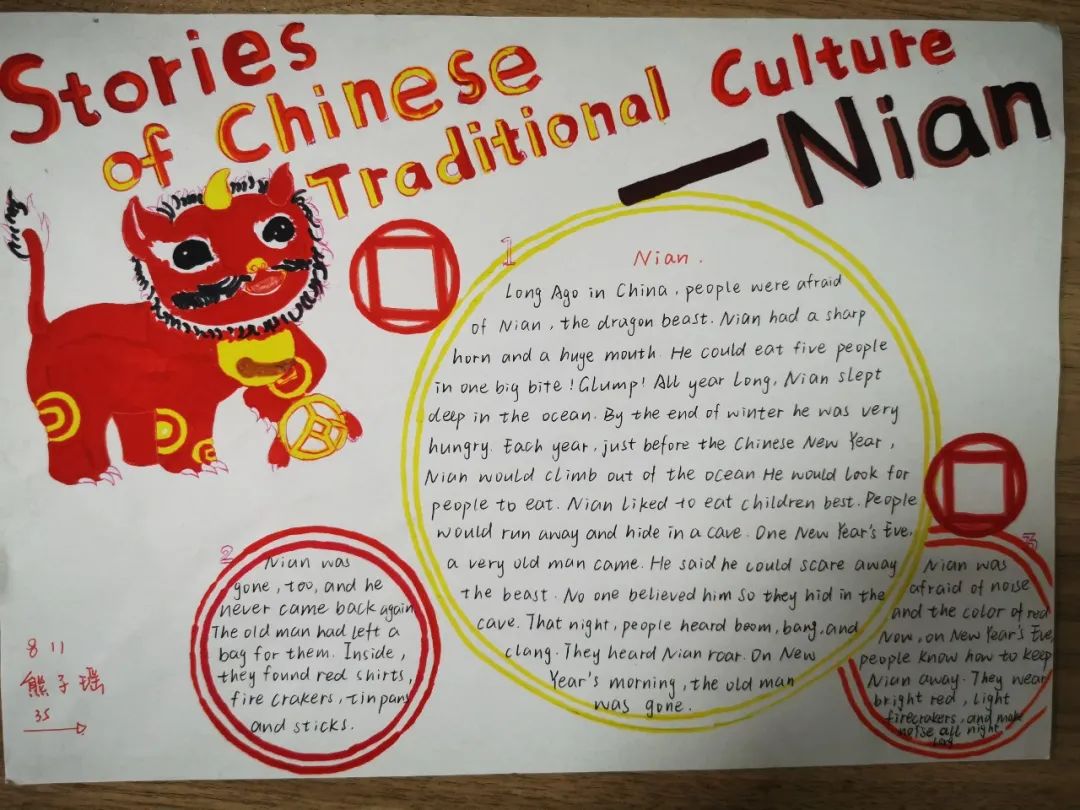 Stories
of Chinese
Traditional Culture
—Nian
1
Nian.
Long Ago in China, people were afraid
of Nian, the dragon beast. Nian had a sharp
horn and a huge mouth. He could eat five people
in one big bite! Glump! All year Long, Nian slept
deep in the ocean. By the end of winter he was very
hungry. Each year, just before the Chinese New Year,
Nian would climb out of the ocean He would look for
people to eat. Nian liked to eat children best. People
would run away and hide in a cave. One New Year's Eve,
a very old man came. He said he could scare away
the beast. No one believed him so they hid in the
cave. That night, people heard boom, bang, and
clang. They heard Nian roar. On New
Year's morning, the old man
was gone.
2
Nian was
gone, too, and he
never came back again
The old man had left a
bag for them. Inside,
they found red shirts,
fire crakers, tin pans
and sticks.
3
Nian was
afraid of noise
and the color of red
Now, on New Year's Eve,
people know how to keep
Nian away. They wear
bright red, light
firecrakers, and make
noise all night
long
8 11
熊子瑶
35